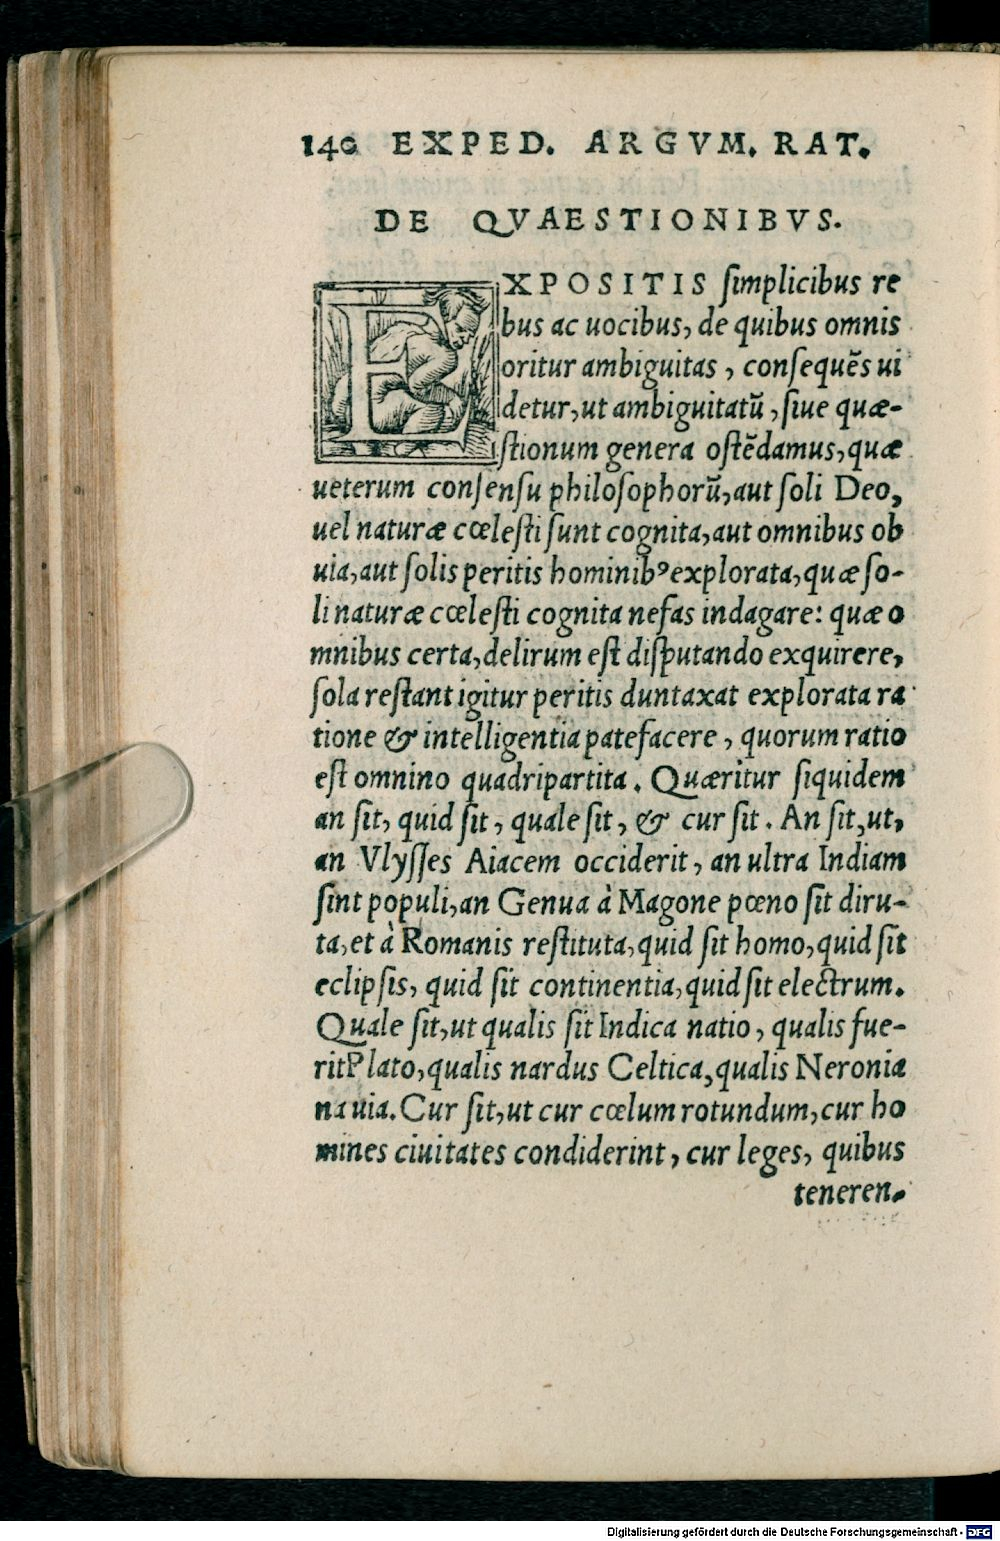 140 EXPED. ARGVM. RAT.
DE QVAESTIONIBVS.
EXPOSITIS simplicibus re
bus ac uocibus, de quibus omnis
oritur ambiguitas, consequẽs ui
detur, ut ambiguitatũ, siue quæ-
stionum genera ostẽdamus, quæ
ueterum consensu philosophorũ, aut soli Deo,
uel naturæ cœlesti sunt cognita, aut omnibus ob
uia, aut solis peritis hominibꝰ explorata, quæ so-
li naturæ cœlesti cognita nefas indagare: quæ o
mnibus certa, delirum est disputando exquirere,
sola restant igitur peritis duntaxat explorata ra
tione & intelligentia patefacere, quorum ratio
est omnino quadripartita. Quæritur siquidem
an sit, quid sit, quale sit, & cur sit. An sit, ut,
an Vlysses Aiacem occiderit, an ultra Indiam
sint populi, an Genua à Magone pœno sit diru-
ta, et à Romanis restituta, quid sit homo, quid sit
eclipsis, quid sit continentia, quid sit electrum.
Quale sit, ut qualis sit Indica natio, qualis fue-
rit Plato, qualis nardus Celtica, qualis Neronia
na uia. Cur sit, ut cur cœlum rotundum, cur ho
mines ciuitates condiderint, cur leges, quibus
teneren-
Digitalisierung gefördert durch die Deutsche Forschungsgemeinschaft - DFG